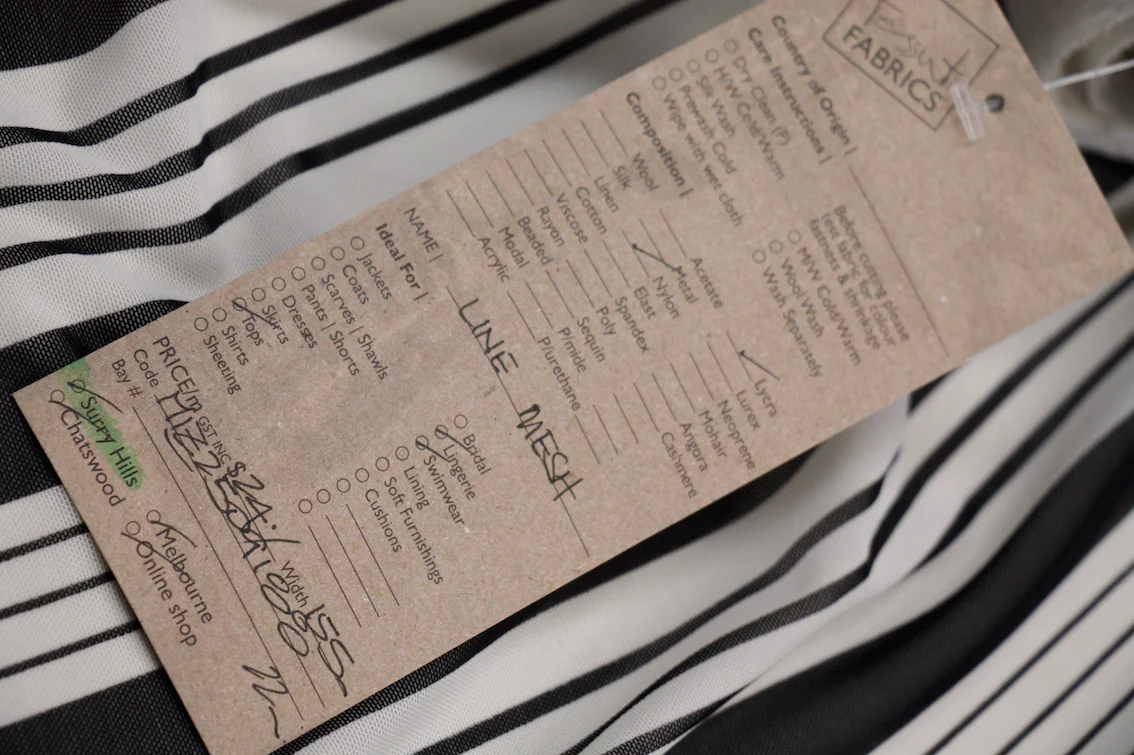 Tessuti
FABRICS
Country of Origin |
Care Instructions |
Dry Clean (P)
H/W Cold/Warm
Silk Wash
Prewash Cold
Wipe with wet cloth
Before cutting please
test fabric for colour
fastness & shrinkage
M/W Cold/Warm
Wool Wash
Wash Separately
Composition |
Wool
Silk
Linen
Cotton
Viscose
Rayon
Beaded
Modal
Acrylic
Acetate
Metal
Nylon
Elast
Spandex
Poly
Sequin
P/mide
P/urethane
Lycra
Lurex
Neoprene
Mohair
Angora
Cashmere
NAME | LINE MESH
Ideal For |
Jackets
Coats
Scarves | Shawls
Pants | Shorts
Dresses
Skirts
Tops
Shirts
Sheeting
Bridal
Lingerie
Swimwear
Lining
Soft Furnishings
Cushions
PRICE/m GST INC $24. Width 155
Code
Bay #
Surry Hills
Chatswood
Melbourne
Online shop